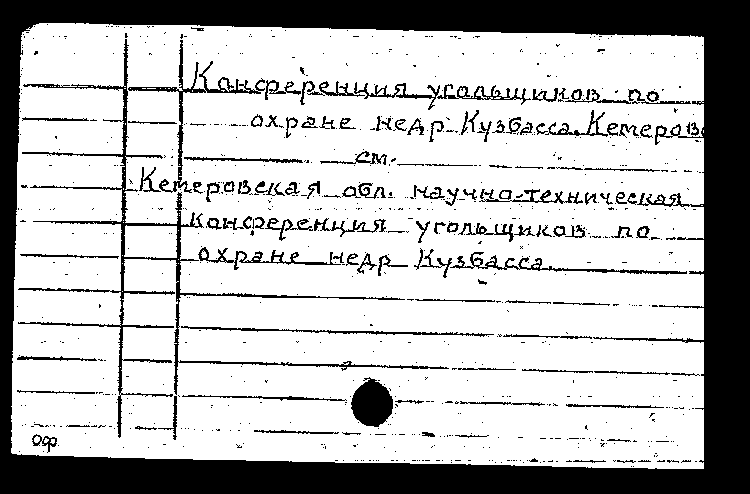 Конференция угольщиков по
охране недр Кузбасса. Кемеров
см.
Кемеровская обл. научно-техническая
конференция угольщиков по
охране недр Кузбасса.
оф